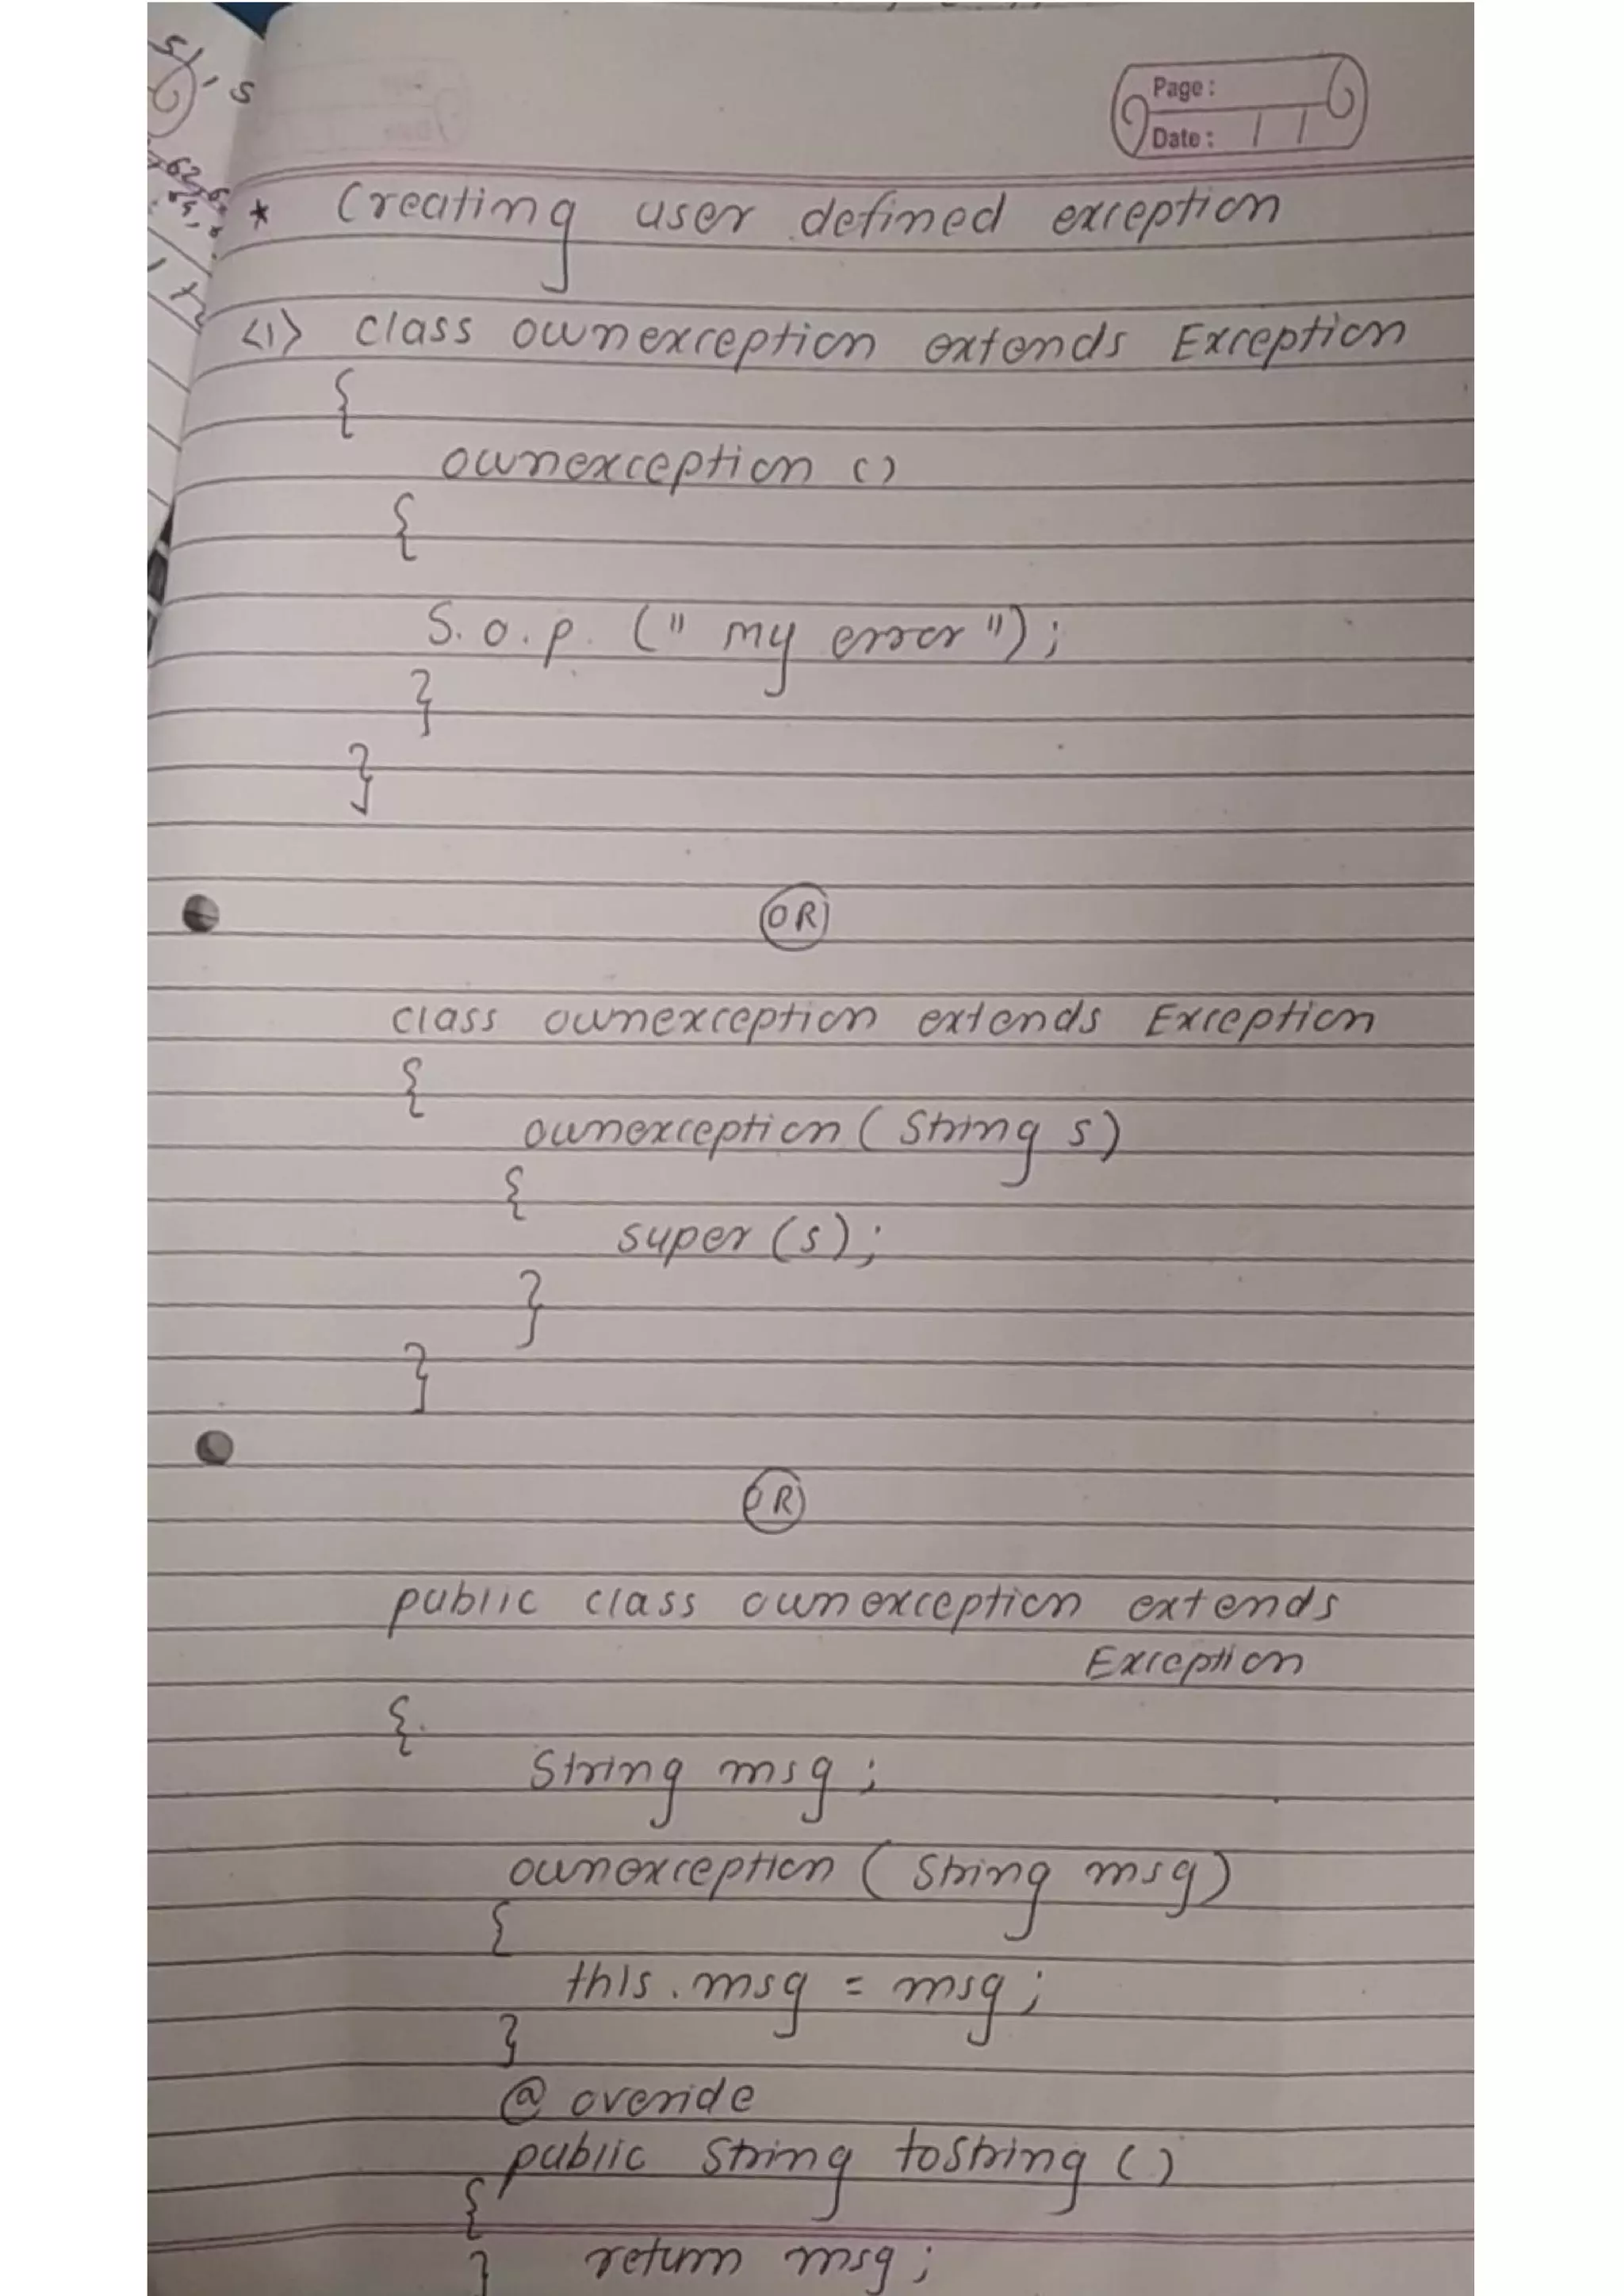 Page :
Date :
* Creating user defined exception
<1> class ownexception extends Exception
{
ownexception ()
{
S.o.p. (" my error");
}
}
OR
class ownexception extends Exception
{
ownexception ( String s)
{
super (s);
}
}
OR
public class ownexception extends
Exception
{
String msg ;
ownexception ( String msg)
{
this . msg = msg ;
}
@ override
public String toString ()
{
} return msg ;